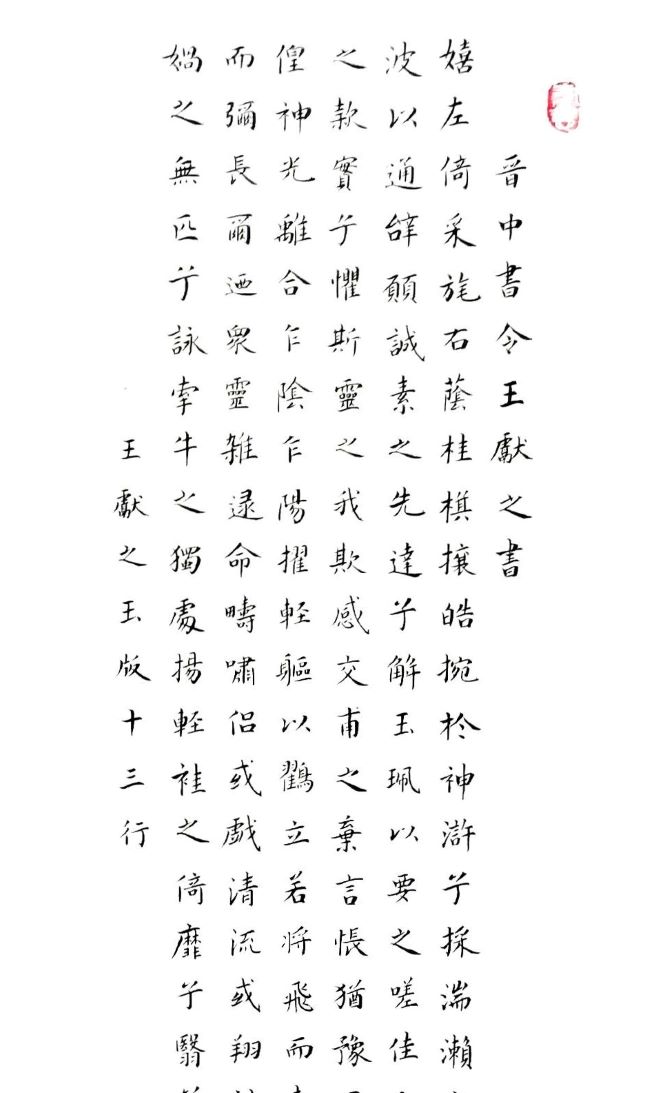 晋中書令王獻之書
嬉左倚采旄右蔭桂棋攘皓捥於神滸兮採湍瀨
波以通辝願誠素之先達兮解玉珮以要之嗟佳
之款實兮懼斯靈之我欺感交甫之棄言悵猶豫
偟神光離合乍陰乍陽擢軽軀以鶴立若将飛而
而彌長爾迺衆靈雜逯命疇嘯侣或戯清流或翔
媧之無匹兮詠牽牛之獨處揚軽袿之倚靡兮翳
王獻之玉版十三行